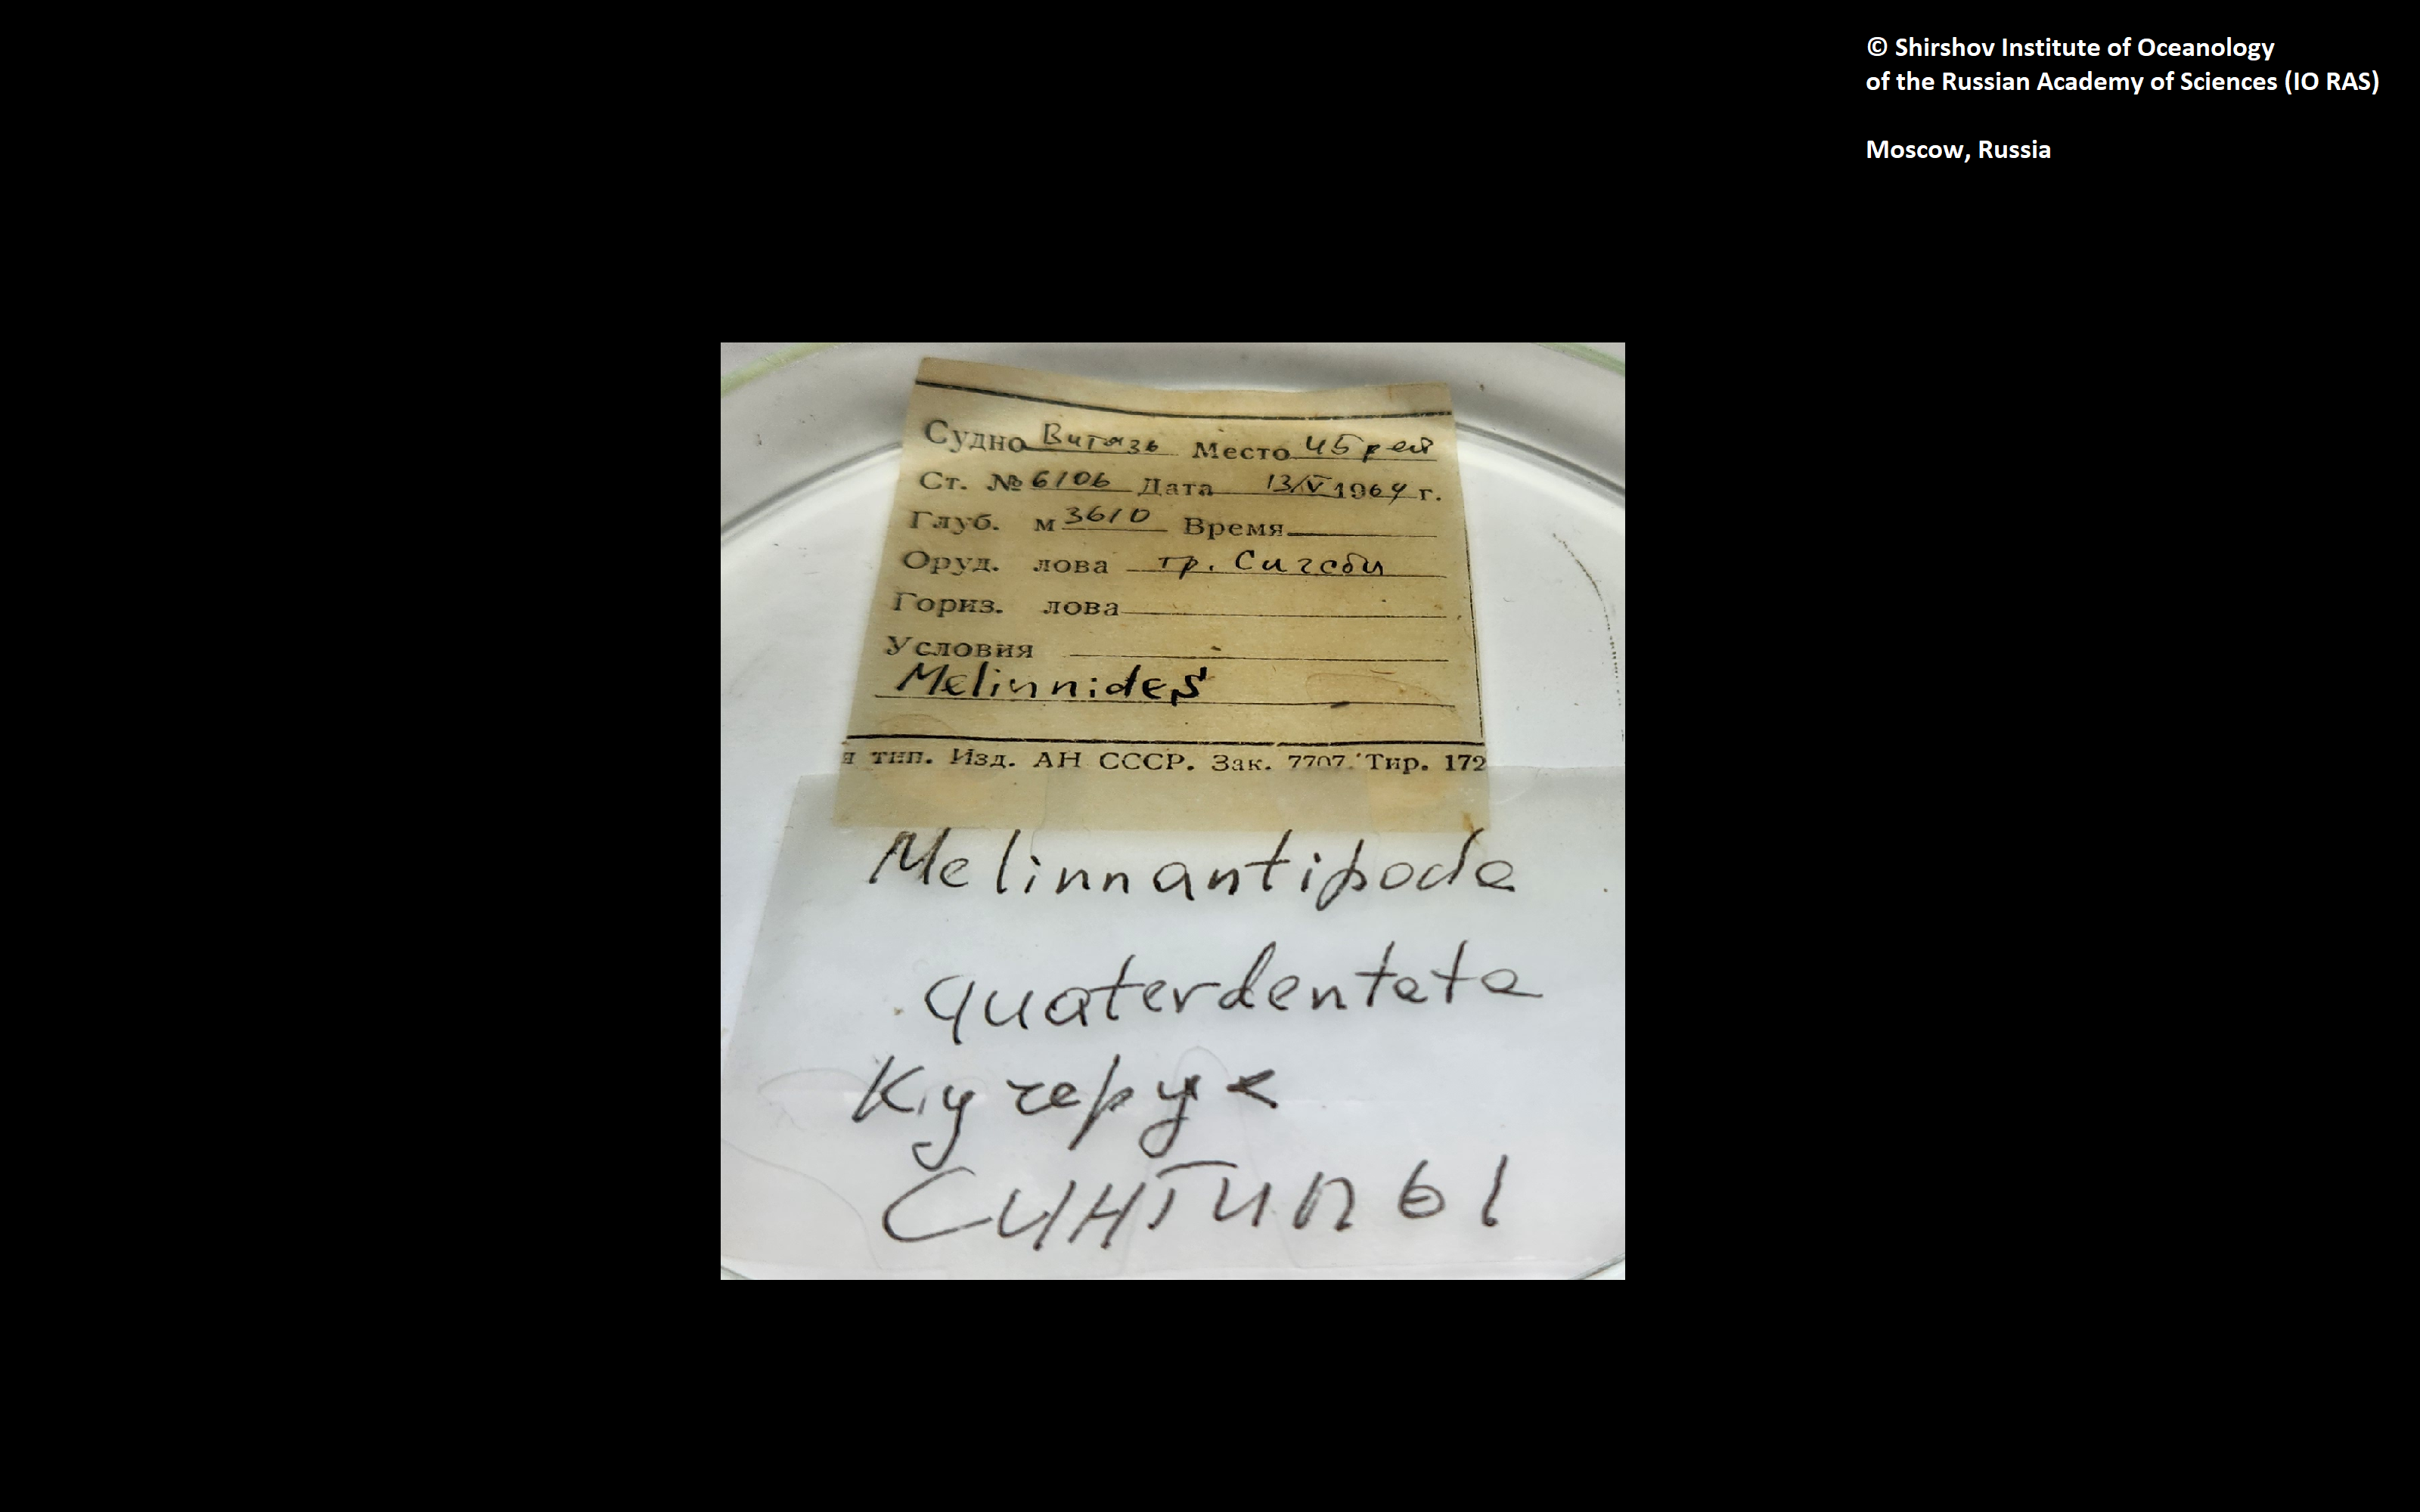 © Shirshov Institute of Oceanology
of the Russian Academy of Sciences (IO RAS)
Moscow, Russia
Судно Витязь Место 45 рей
Ст. № 6106 Дата 13/V 1969 г.
Глуб. м 3610 Время
Оруд. лова тр. Сигсби
Гориз. лова
Условия
Melinnides
я тип. Изд. АН СССР. Зак. 7707. Тир. 172
Melinnantipoda
quaterdentata
Кучерук
Синтипы